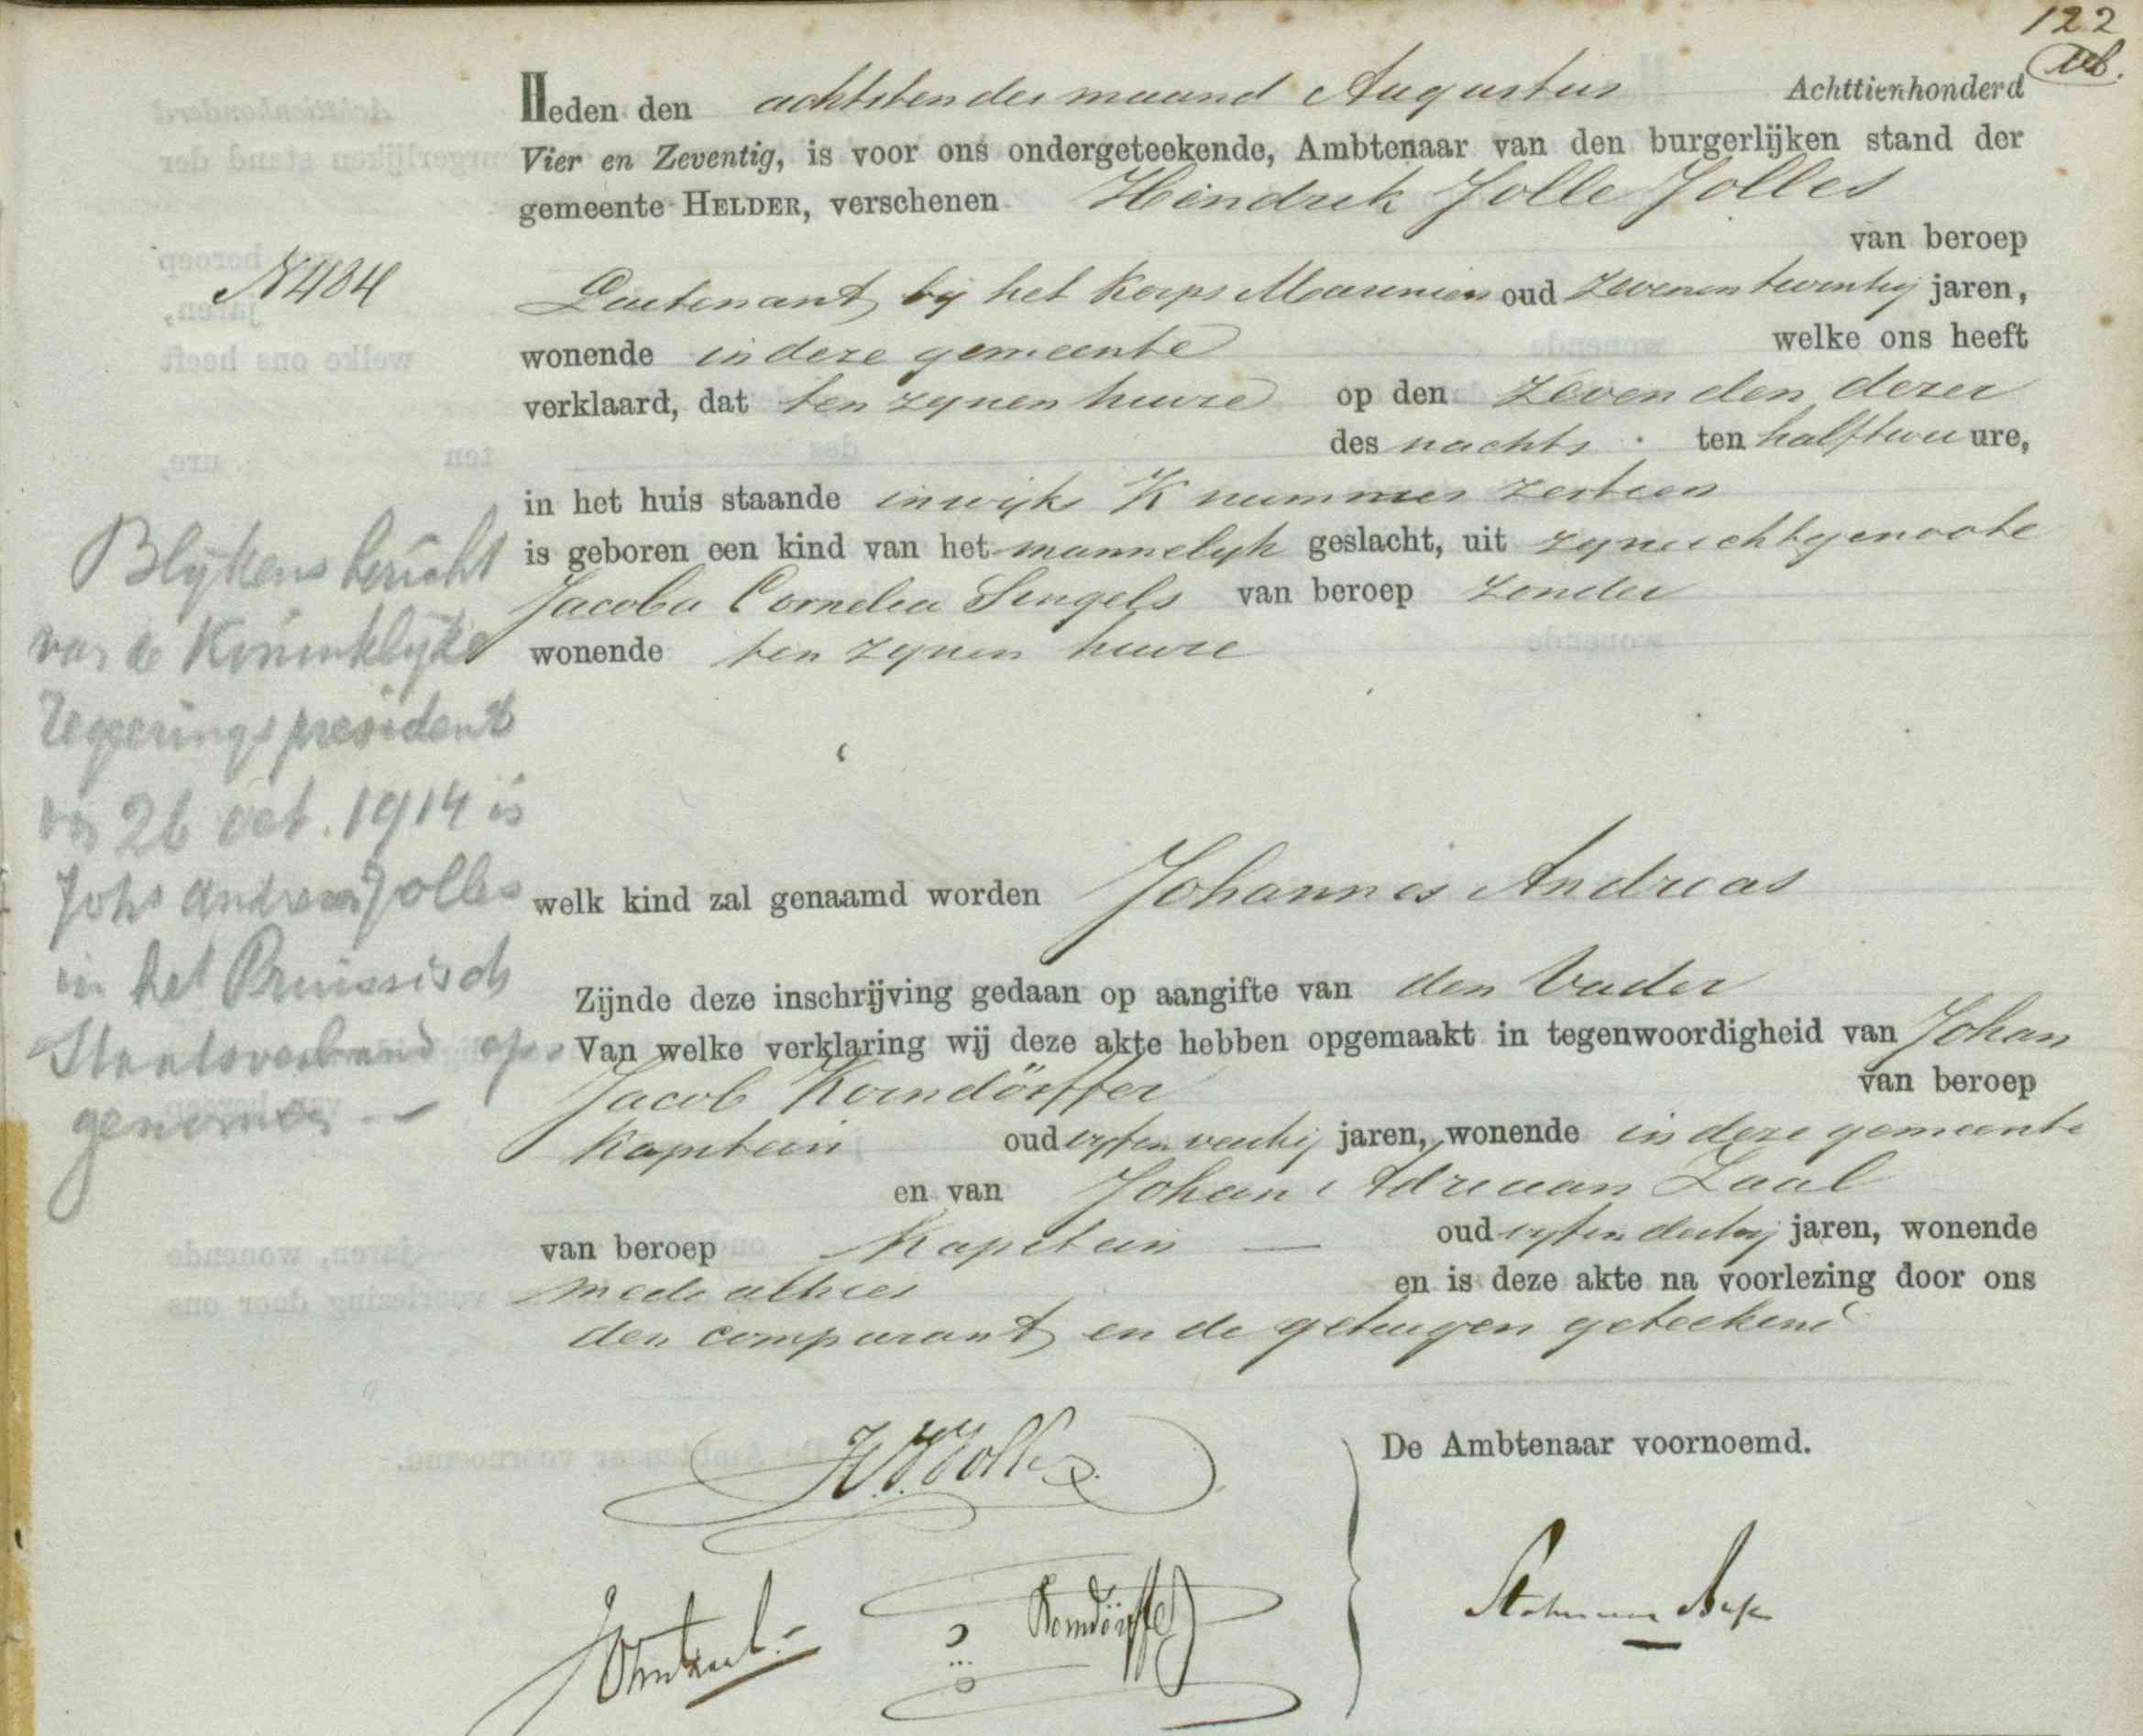 122
Heden den achtsten der maand Augustus Achttienhonderd
Vier en Zeventig, is voor ons ondergeteekende, Ambtenaar van den burgerlijken stand der
gemeente HELDER, verschenen Hendrik Jolle Jolles
van beroep
N 434
Luitenant bij het Korps Mariniers oud zevenentwintig jaren,
wonende in deze gemeente welke ons heeft
verklaard, dat ten zijnen huize op den zevenden dezer
des nachts ten half twee ure,
in het huis staande in wijk K nummer zestien
is geboren een kind van het mannelijk geslacht, uit zijne echtgenoote
Jacoba Cornelia Singels van beroep zonder
wonende ten zijnen huize
Blijkens bericht
van de Koninklijke
Regeeringspresident
van 26 oct. 1914 is
Johs Andreas Jolles
in het Pruissisch
Staatsverband op-
genomen —
welk kind zal genaamd worden Johannes Andreas
Zijnde deze inschrijving gedaan op aangifte van den Vader
Van welke verklaring wij deze akte hebben opgemaakt in tegenwoordigheid van Johan
Jacob Korndörffer van beroep
Kapitein oud jaren, wonende in deze gemeente
en van Johan Adriaan Zaal
van beroep Kapitein — oud vijfendertig jaren, wonende
mede alhier en is deze akte na voorlezing door ons
den comparant en de getuigen geteekend
De Ambtenaar voornoemd.
H.J. Jolles
Korndörffer